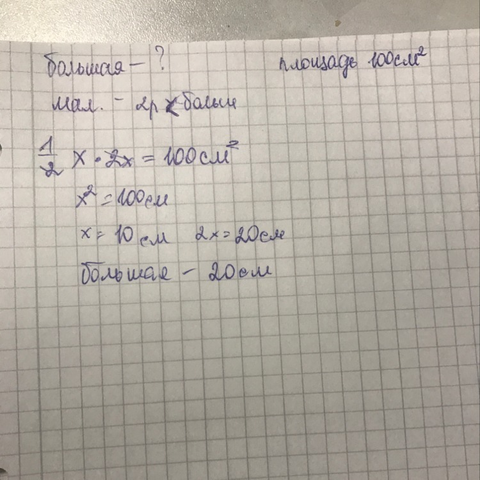 большая - ? площадь 100см²
мал. - 2р < больш
1/2 x · 2x = 100см²
x² = 100см
x = 10 см 2x = 20см
большая - 20см